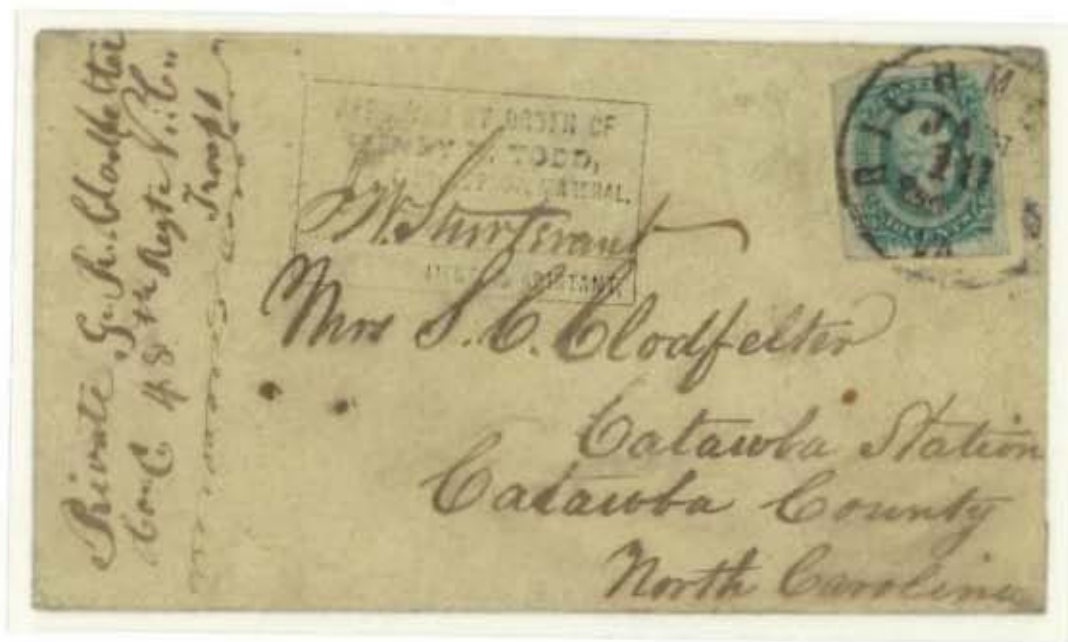 Private G. R. Clodfelter
Com C 48th Regt N. C.
Troops
BY ORDER OF
TODD,
J. W. Sturtevant
Mrs S. C. Clodfelter
Catawba Station
Catawba County
North Carolina
RICHM
VA